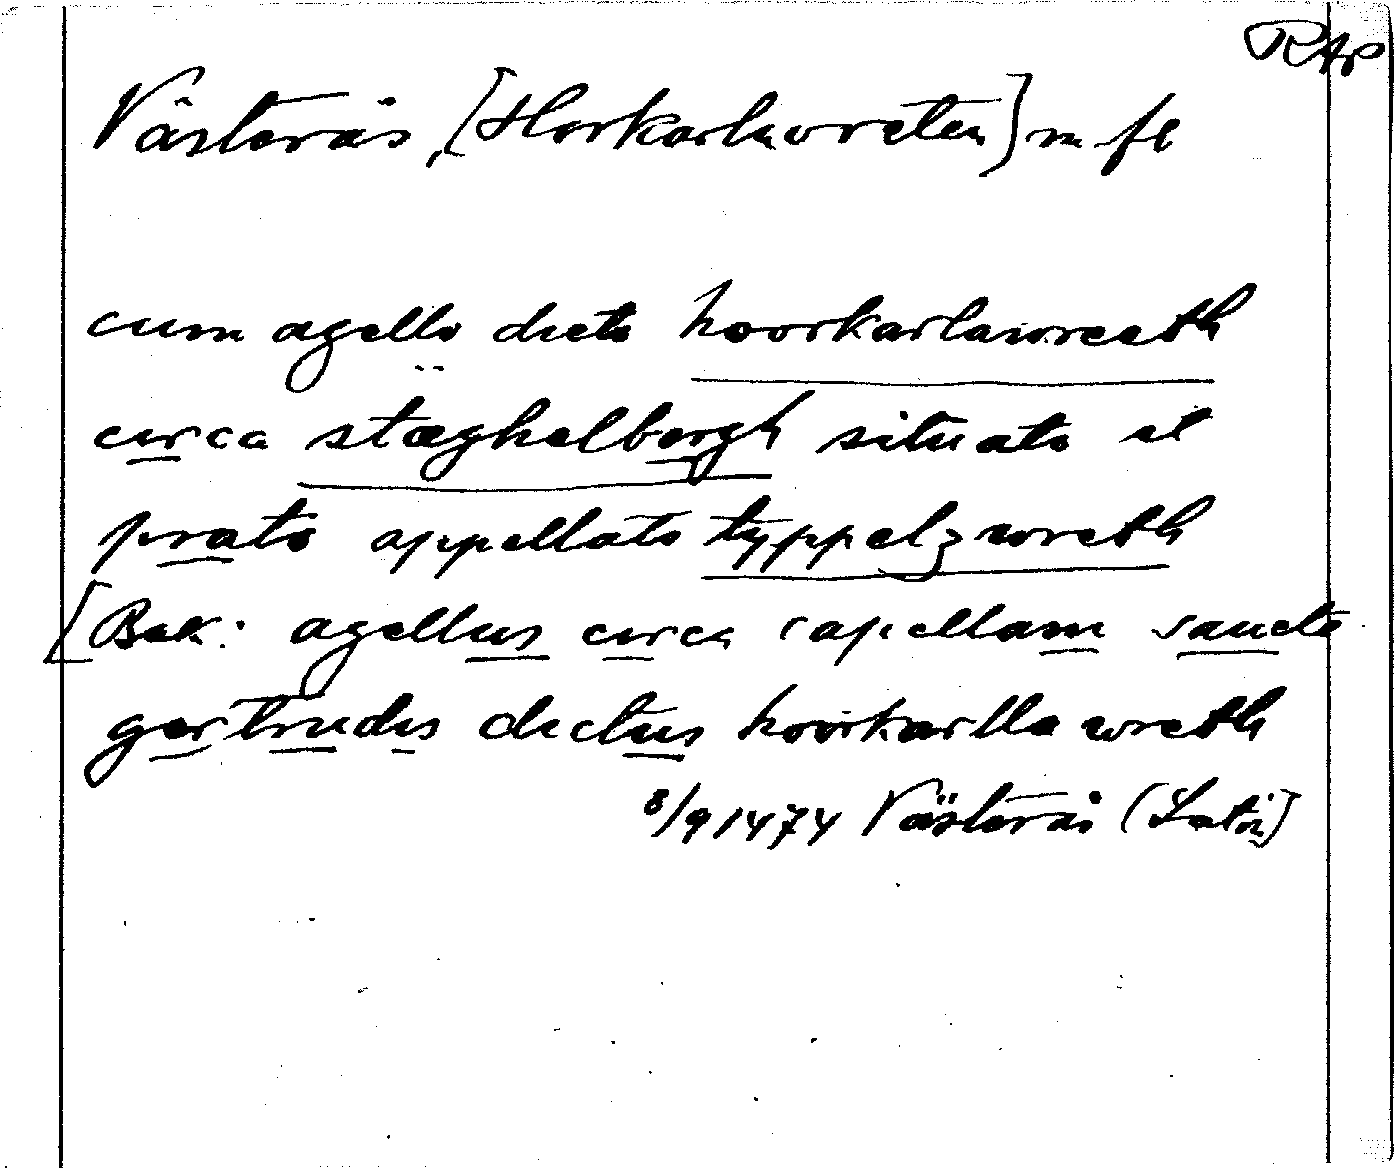 RAp
Västerås, [Horkarlavreten] m fl
cum agello dicto hoorkarlawreeth
circa stæghelbergh situato et
prato appellato typpelzwreth
[Bak: agellus circa capellam sancte
gertrudis dictus hoorkarlla wreth
8/9 1474 Västerås (Latin)